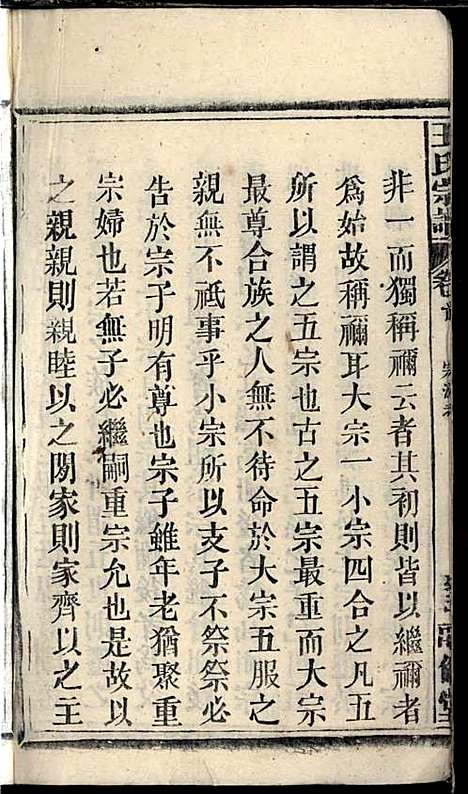 王氏宗譜 卷首
非一而獨稱禰云者其初則皆以繼禰者
爲始故稱禰耳大宗一小宗四合之凡五
所以謂之五宗也古之五宗最重而大宗
最尊合族之人無不待命於大宗五服之
親無不祇事乎小宗所以支子不祭祭必
告於宗子明有尊也宗子雖年老猶聚重
宗婦也若無子必繼嗣重宗允也是故以
之親親則親睦以之閑家則家齊以之主